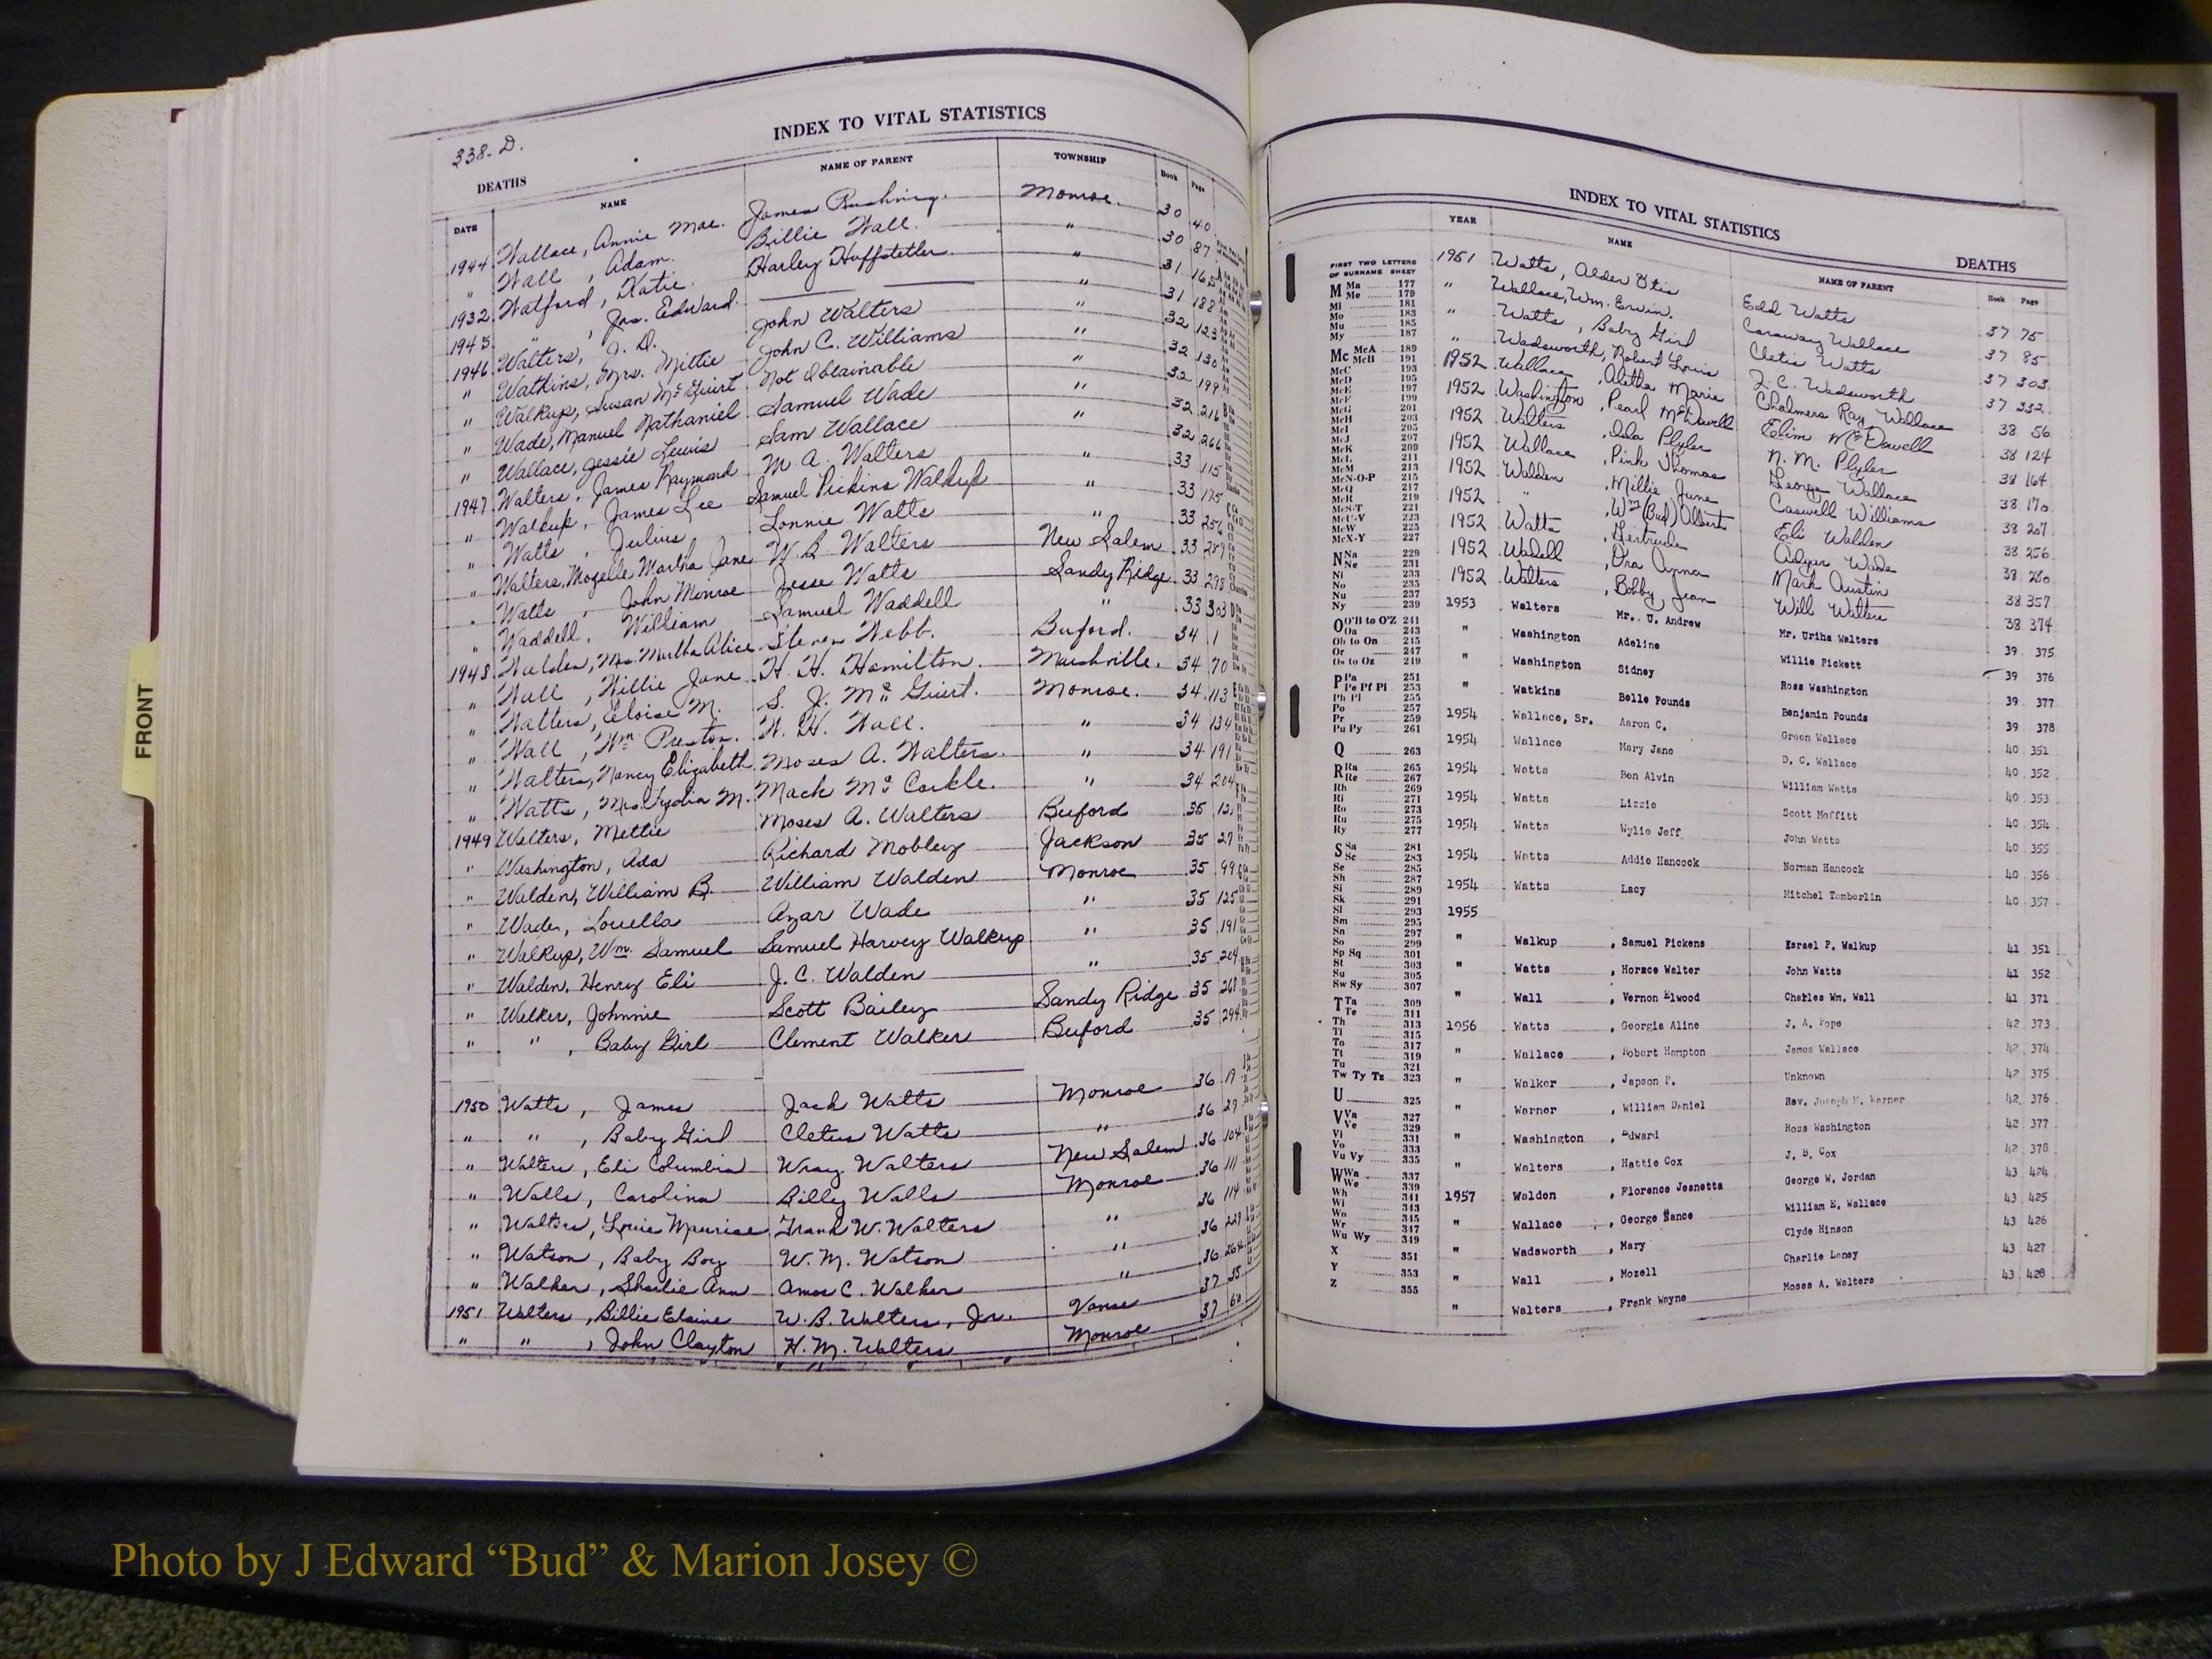 338-D.
INDEX TO VITAL STATISTICS
DEATHS
DATE NAME NAME OF PARENT TOWNSHIP Book Page
1944 Wallace, Annie Mae. James Rushing. Monroe. 30 40
" Wall, Adam. Billie Wall. " 30 87
1932 Watford, Katie. Harley Huffstetler. " 31 165
1945 " , Jas. Edward. " 31 188
1946 Walters, J. D. John Walters " 32 123
" Watkins, Mrs. Mittie John C. Williams " 32 130
" Walkup, Susan McGuirt Not Obtainable " 32 199
" Wade, Manuel Nathaniel Samuel Wade " 32 216
" Wallace, Jessie Lewis Sam Wallace " 32 266
1947 Walters, James Raymond M. A. Walters " 33 115
" Walkup, James Lee Samuel Pickins Walkup " 33 175
" Watts, Julius Lonnie Watts " 33 256
" Walters, Mozelle Martha Jane W. B. Walters New Salem 33 289
" Watts, John Monroe Jesse Watts Sandy Ridge 33 298
" Waddell, William Samuel Waddell " 33 303
1948 Walden, Mrs. Murtha Alice Steven Webb. Buford. 34 1
" Wall, Willie Jane H. H. Hamilton. Marshville. 34 70
" Walters, Eloise M. S. J. McGuirt. Monroe. 34 113
" Wall, Wm. Preston. W. H. Wall. " 34 134
" Walters, Nancy Elizabeth Moses A. Walters. " 34 191
" Watts, Mrs. Lydia M. Mack McCorkle. " 34 204
1949 Walters, Mettie Moses A. Walters Buford 35 12
" Washington, Ada Richard Mobley Jackson 35 27
" Walden, William B. William Walden Monroe 35 99
" Wade, Louella Azar Wade " 35 125
" Walkup, Wm. Samuel Samuel Harvey Walkup " 35 191
" Walden, Henry Eli J. C. Walden " 35 204
" Walker, Johnnie Scott Bailey Sandy Ridge 35 268
" " , Baby Girl Clement Walker Buford 35 294
1950 Watts, James Jack Watts Monroe 36 17
" " , Baby Girl Cletus Watts " 36 29
" Walters, Eli Columbia Wray Walters New Salem 36 104
" Walls, Carolina Billy Walls Monroe 36 111
" Walters, Louis Maurice Frank W. Walters " 36 114
" Watson, Baby Boy W. M. Watson " 36 229
" Walker, Sharlie Ann Amos C. Walker " 36 264
1951 Walters, Billie Elaine W. B. Walters, Jr. Vance 37 35
" " , John Clayton H. M. Walters Monroe 37 60
INDEX TO VITAL STATISTICS
DEATHS
YEAR NAME NAME OF PARENT Book Page
1951 Watts, Alder Otis Edd Watts 37 75
" Wallace, Wm. Erwin. Caraway Wallace 37 85
" Watts, Baby Girl Cletis Watts 37 303
" Wadsworth, Robert Louis Z. C. Wadsworth 37 332
1952 Wallace, Aletha Marie Chalmers Ray Wallace 38 56
1952 Washington, Pearl McDowell Elim McDowell 38 124
1952 Walters, Ida Plyler N. M. Plyler 38 164
1952 Wallace, Pink Thomas George Wallace 38 170
1952 Walden, Millie Jane Caswell Williams 38 207
1952 " , Wm (Bud) Albert Eli Walden 38 256
1952 Watts, Gertrude Adger Wade 38 280
1952 Wadell, Ora Anna Mark Austin 38 357
1952 Walters, Bobby Jean Will Walters 38 374
1953 Walters Mr. U. Andrew Mr. Uriha Walters 39 375
" Washington Adeline Willie Pickett 39 376
" Washington Sidney Ross Washington 39 377
" Watkins Belle Pounds Benjamin Pounds 39 378
1954 Wallace, Sr. Aaron C. Green Wallace 40 351
1954 Wallace Mary Jane D. C. Wallace 40 352
1954 Watts Ben Alvin William Watts 40 353
1954 Watts Lizzie Scott Moffitt 40 354
1954 Watts Wylie Jeff John Watts 40 355
1954 Watts Addie Hancock Norman Hancock 40 356
1954 Watts Lacy Mitchel Tomberlin 40 357
1955
" Walkup , Samuel Pickens Esrael P. Walkup 41 351
" Watts , Horace Walter John Watts 41 352
" Wall , Vernon Elwood Charles Wm. Wall 41 371
1956 Watts , Georgia Aline J. A. Pope 42 373
" Wallace , Robert Hampton James Wallace 42 374
" Walker , Japson P. Unknown 42 375
" Warner , William Daniel Rev. Joseph M. Warner 42 376
" Washington , Edward Ross Washington 42 377
" Walters , Hattie Cox J. B. Cox 42 378
1957 Waldon , Florence Jeanetta George W. Jordan 43 424
" Wallace , George Nance William E. Wallace 43 425
" Wadsworth , Mary Clyde Hinson 43 426
" Wall , Mozell Charlie Laney 43 427
" Walters , Frank Wayne Moses A. Walters 43 428
FIRST TWO LETTERS
OF SURNAME SHEET
M Ma 177
Me 179
Mi 181
Mo 183
Mu 185
My 187
Mc McA 189
McB 191
McC 193
McD 195
McE 197
McF 199
McG 201
McH 203
McI 205
McJ 207
McK 209
McL 211
McM 213
McN-O-P 215
McQ 217
McR 219
McS-T 221
McU-V 223
McW 225
McX-Y 227
N Na 229
Ne 231
Ni 233
No 235
Nu 237
Ny 239
O O'B to O'Z 241
Oa 243
Ob to On 245
Or 247
Os to Oz 249
P Pa 251
Pe Pf Pl 253
Ph Pi 255
Po 257
Pr 259
Pu Py 261
Q 263
R Ra 265
Re 267
Rh 269
Ri 271
Ro 273
Ru 275
Ry 277
S Sa 281
Sc 283
Se 285
Sh 287
Si 289
Sk 291
Sl 293
Sm 295
Sn 297
So 299
Sp Sq 301
St 303
Su 305
Sw Sy 307
T Ta 309
Te 311
Th 313
Ti 315
To 317
Tt 319
Tu 321
Tw Ty Tz 323
U 325
V Va 327
Ve 329
Vi 331
Vo 333
Vu Vy 335
W Wa 337
We 339
Wh 341
Wi 343
Wo 345
Wr 347
Wu Wy 349
X 351
Y 353
Z 355
FRONT
Photo by J Edward “Bud” & Marion Josey ©